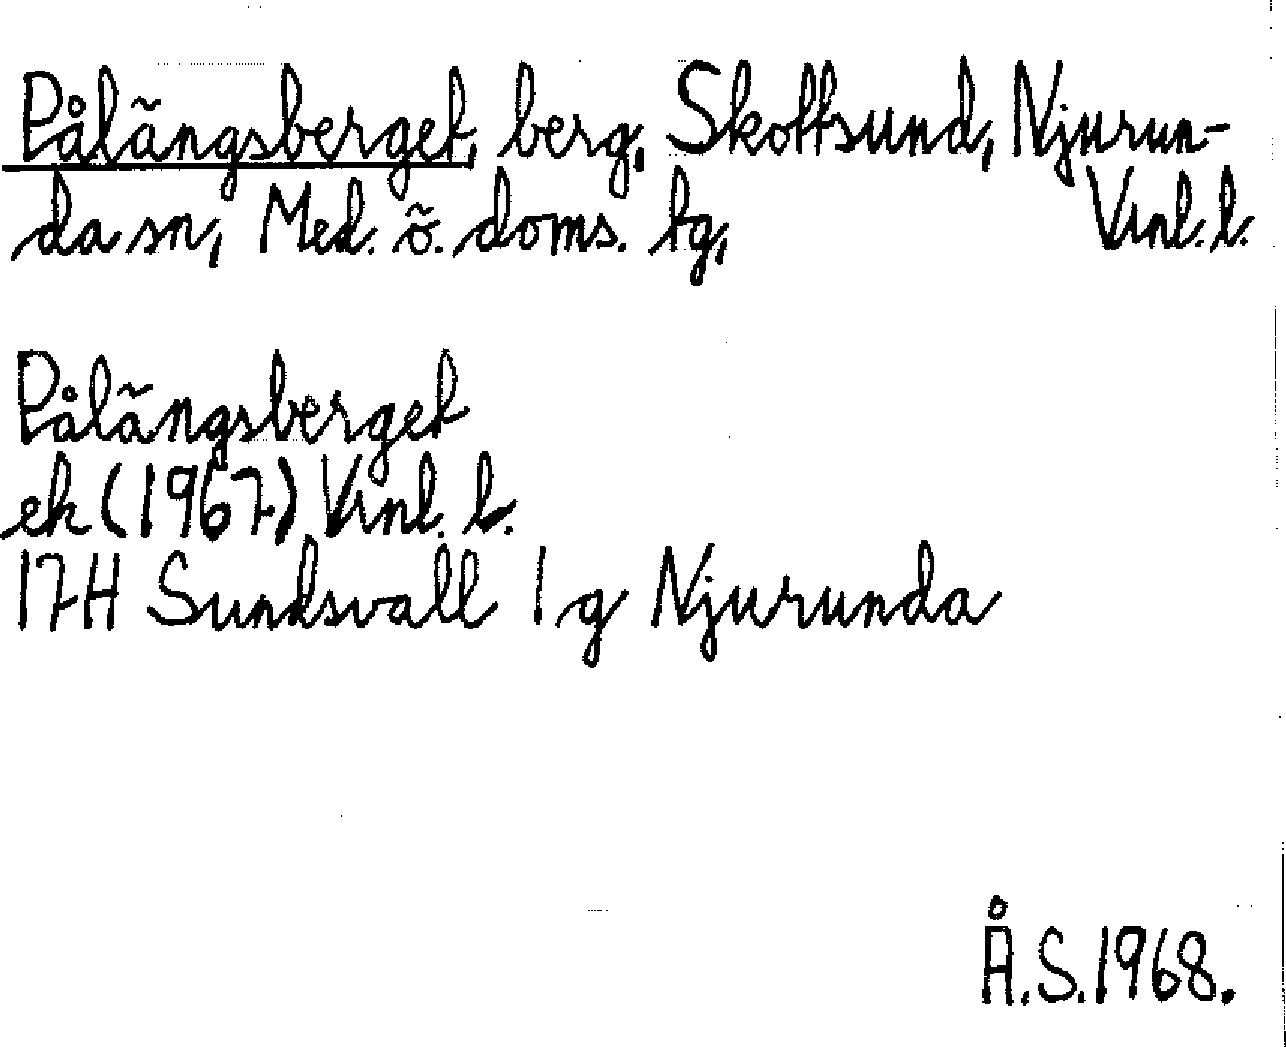 Pålängsberget, berg, Skottsund, Njurun-
da sn, Med. ö. doms. tg, Vnl. l.
Pålängsberget
ek (1967) Vnl. l.
17H Sundsvall 1 g Njurunda
Å.S.1968.